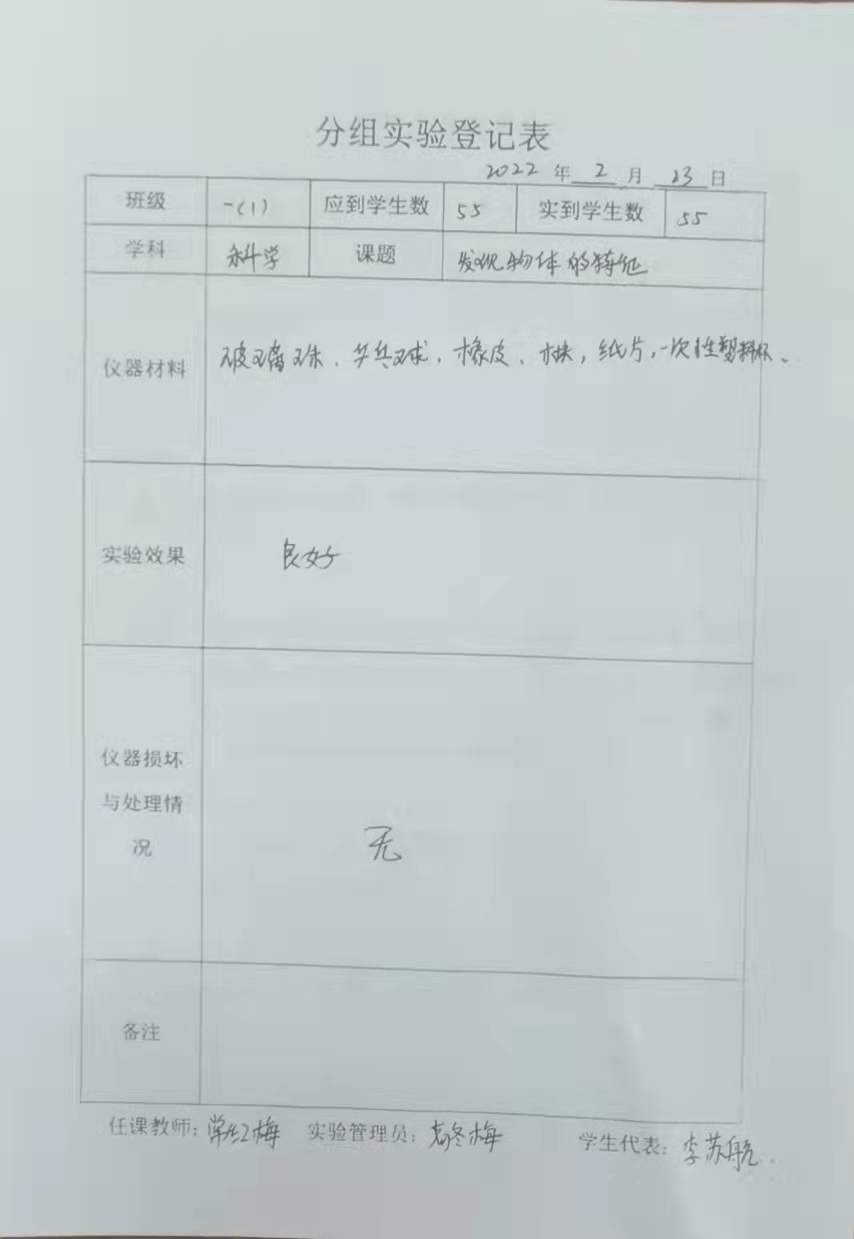 分组实验登记表
2022 年 2 月 23 日
班级 一(1) 应到学生数 55 实到学生数 55
学科 科学 课题 发现物体的特征
仪器材料 玻璃珠、乒乓球、橡皮、木块,纸片,一次性塑料杯、
实验效果 良好
仪器损坏
与处理情
况 无
备注
任课教师: 红梅 实验管理员: 冬梅 学生代表: 李苏航